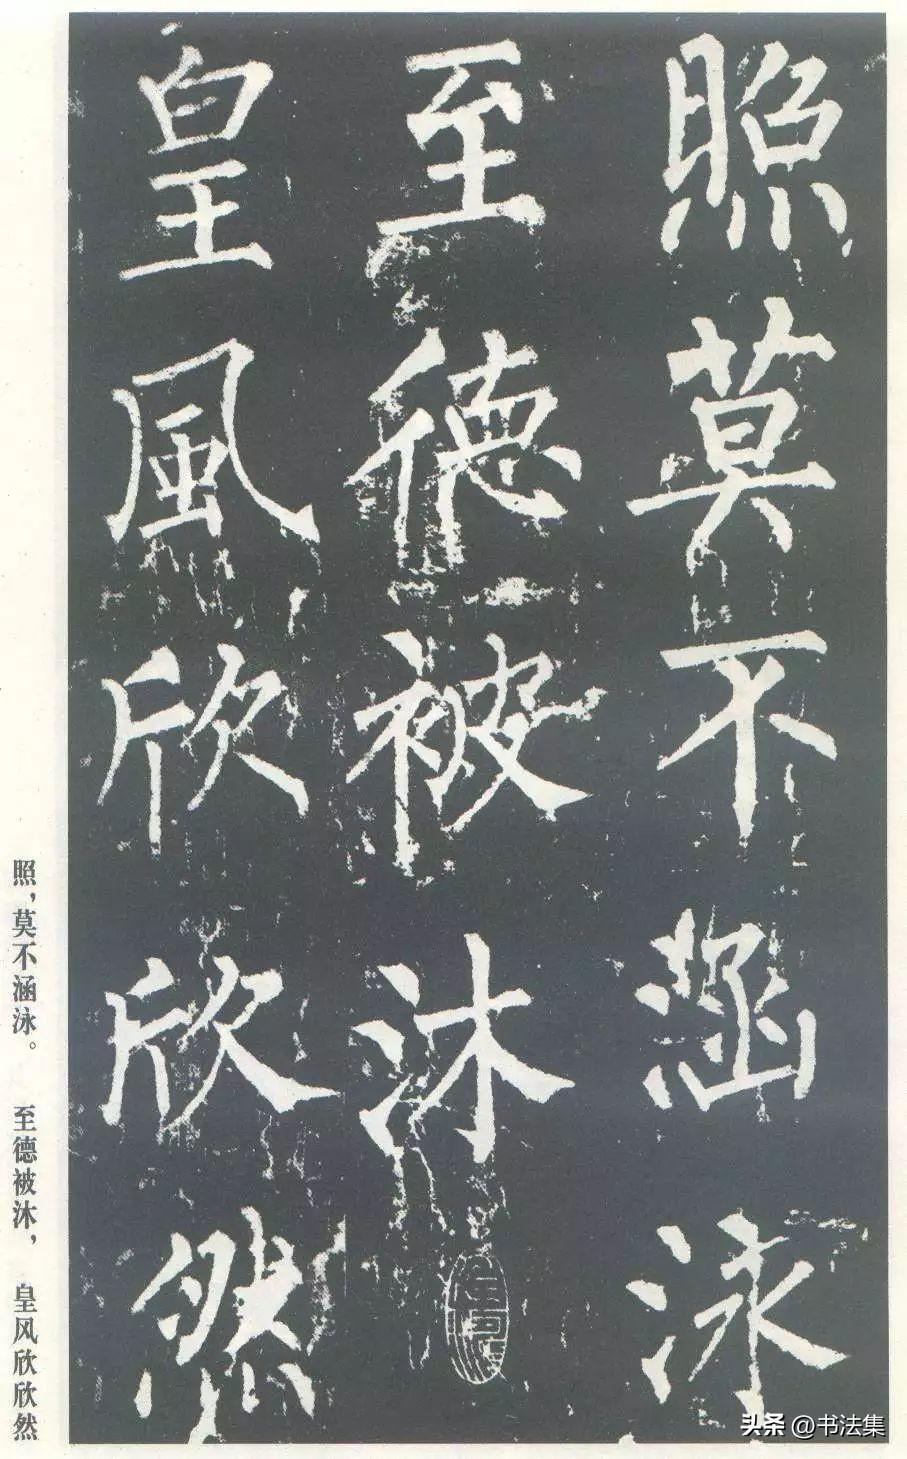 照莫不涵泳
至德被沐
皇風欣欣然
照，莫不涵泳。 至德被沐， 皇风欣欣然
头条 @书法集